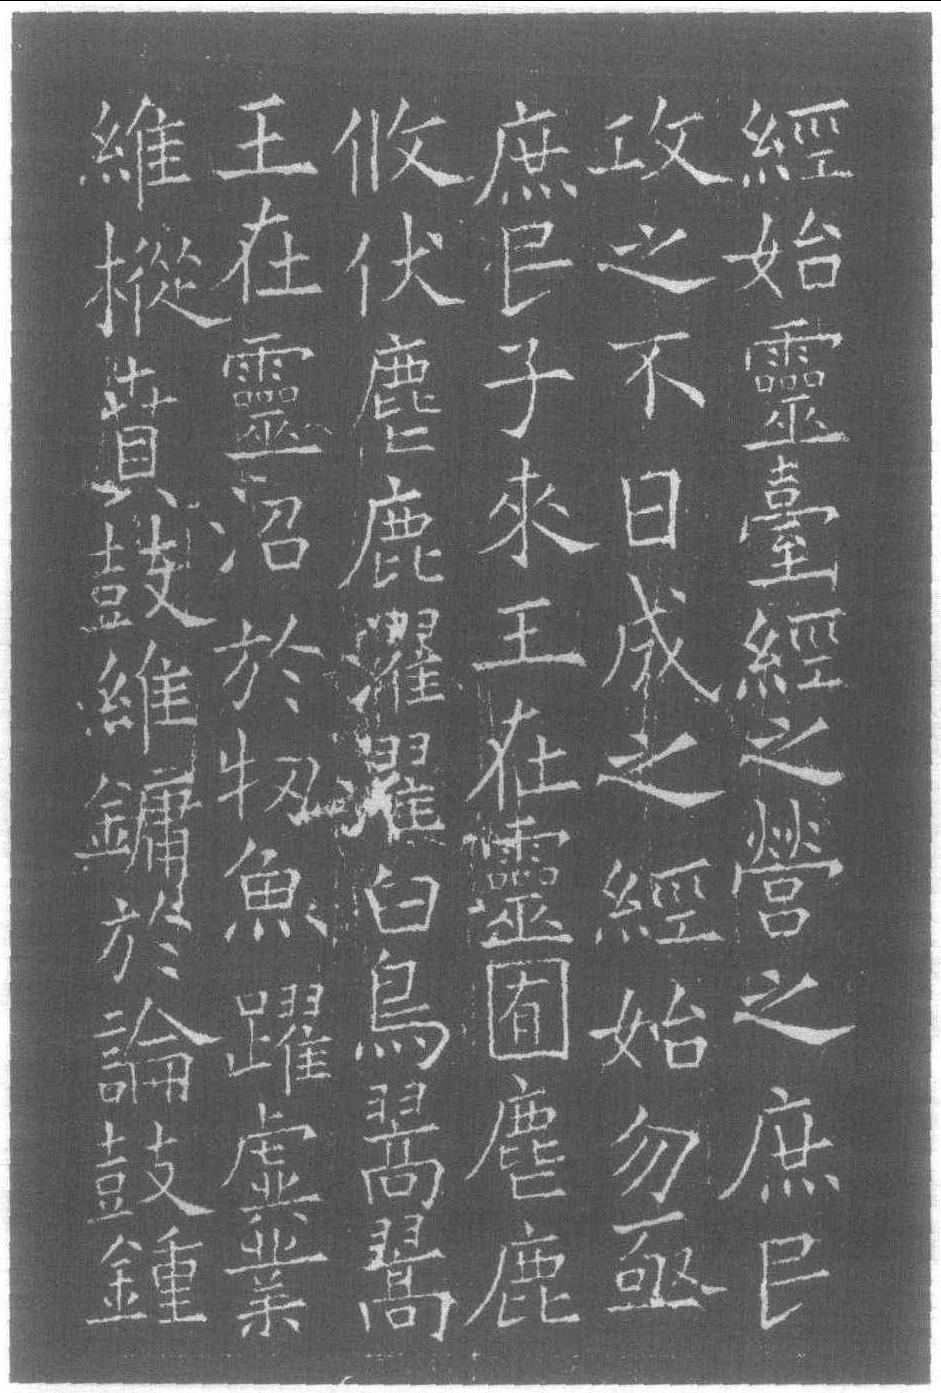 經始靈臺經之營之庶民
攻之不日成之經始勿亟
庶民子來王在靈囿麀鹿
攸伏麀鹿濯濯白鳥翯翯
王在靈沼於牣魚躍虡業
維樅賁鼓維鏞於論鼓鍾